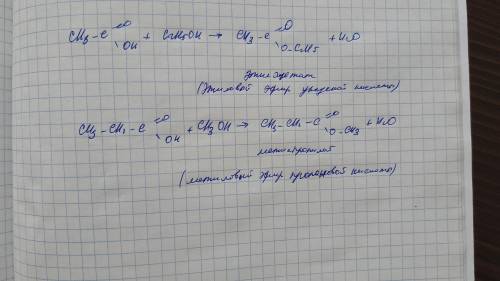 CH3-C=O OH + C2H5OH → CH3-C=O O-C2H5 + H2O
этилацетат
(Этиловый эфир уксусной кислоты)
CH3-CH2-C=O OH + CH3OH → CH3-CH2-C=O O-CH3 + H2O
метилпропилат
(метиловый эфир пропановой кислоты)